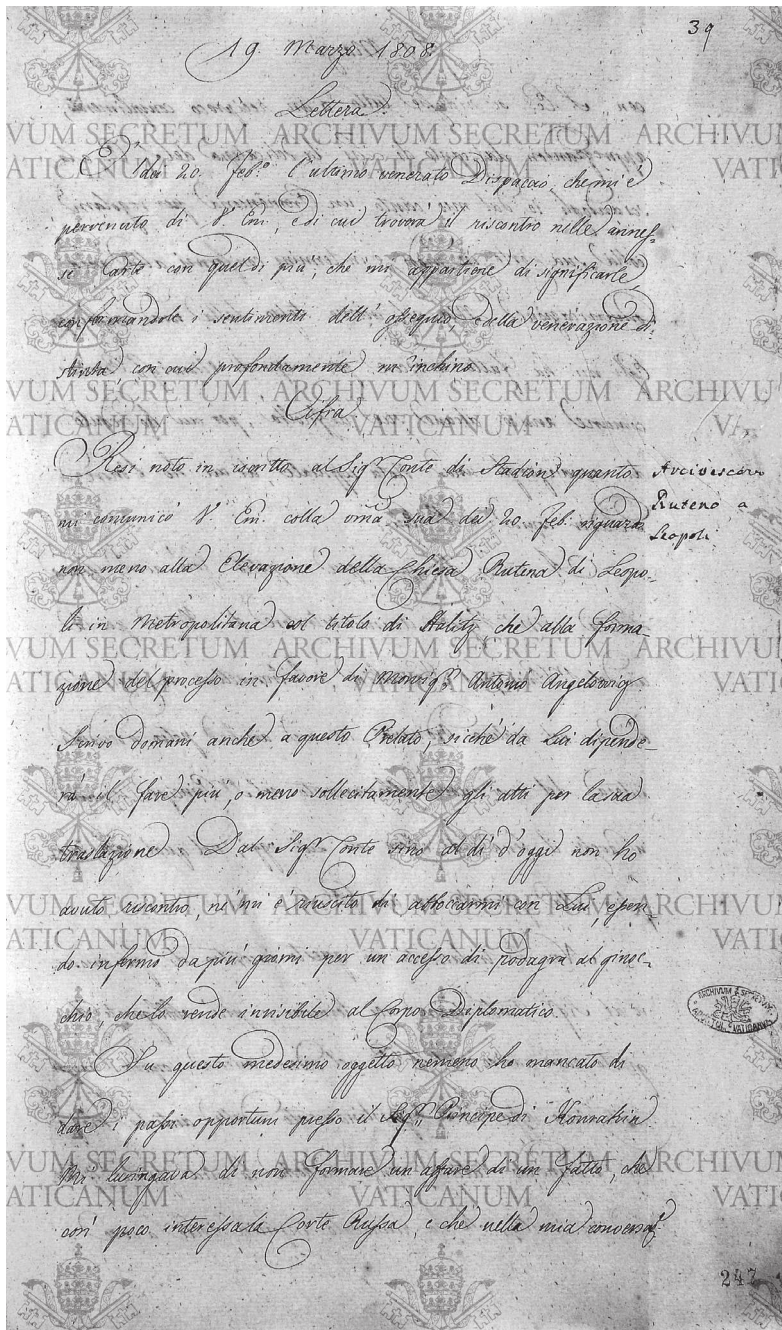 39
19. Marzo 1808.
Lettera.
E' dei 20. Feb.º l'ultimo venerato Dispaccio, che mi è
pervenuto di V. Em, e di cui trovera il riscontro nelle annes-
se Carte con quel di più, che mi appartiene di significarle,
confermandole i sentimenti dell' ossequio, e della venerazione di-
stinta, con cui profondamente m'inchino.
Cifra
Resi noto in iscritto al Sigr Conte di Stadion quanto
mi comunicò V. Em. colla sua dei 20. Feb. riguardo
non meno alla Elevazione della Chiesa Rutena di Leopo-
li in Metropolitana col titolo di Halitz, che alla forma-
zione del processo in favore di Monsigr Antonio Angelowicz
Scrivo domani anche a questo Prelato, sicché da Lui dipende-
rà il fare più, o meno sollecitamente gli atti per la sua
traslazione. Dal Sigr Conte sino al dì d'oggi non ho
avuto riscontro, nè mi è riuscito di abboccarmi con Lui, essen-
do infermo da più giorni per un accesso di podagra al ginoc-
chio, che lo rende invisibile al Corpo Diplomatico.
Su questo medesimo oggetto nemeno ho mancato di
dare i passi opportuni presso il Sigr Principe di Kourakin
Mi lusingava di non formare un affare di un fatto, che
così poco interessa la Corte Russa, e che nella mia conversaz
Arcivescovo
Ruteno a
Leopoli.
247
ARCHIVUM SECRETUM
VATICANUM